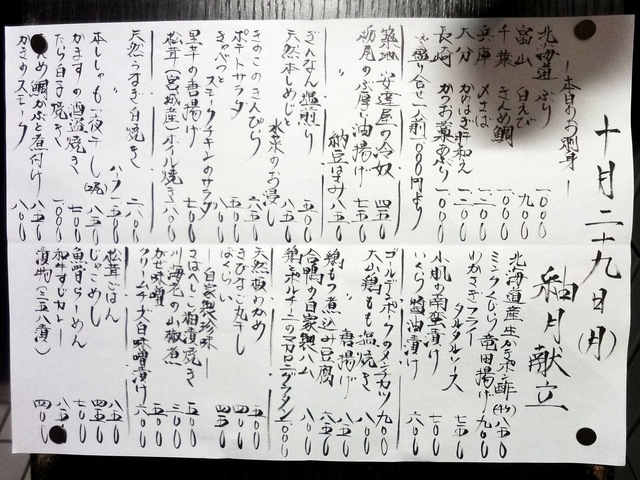 十月二十九日(月)
紬月献立
―本日のお刺身―
北海道 ぶり 一、〇〇〇
富山 白えび 九〇〇
千葉 きんめ鯛 一、〇〇〇
兵庫 〆さば
大分 かわはぎ肝和え
長崎 かつお藁あぶり
お盛り合せ一人前二、〇〇〇円より
築地 安達屋の冷奴 四五〇
栃尾のぶ厚い油揚げ 七五〇
〃 納豆はさみ 八五〇
ぎんなん塩煎り 五〇〇
天然本しめじと
水菜のお浸し 八〇〇
きのこのきんぴら 六五〇
ポテトサラダ
きゃべつと
スモークチキンのサラダ 八五〇
里芋の唐揚げ 七〇〇
松茸(宮城産)ホイル焼き 一、八〇〇
天然うなぎ白焼き 二、六〇〇
〃 ハーフ 一、五〇〇
本ししゃも一夜干し(二尾) 八五〇
かますの酒盗焼き 七〇〇
たら白子焼き 一、〇〇〇
きんめ鯛かぶと煮付け
かきのスモーク 八〇〇
北海道産生がきポン酢(4ヶ) 八五〇
ミンクくじら竜田揚げ 九〇〇
わかさぎフライ
タルタルソース 七五〇
小肌の南蛮漬け 七〇〇
いくら醤油漬け 六〇〇
ゴールデンポークのメンチカツ 九〇〇
大山鶏もも塩焼き 八〇〇
〃 唐揚げ 八五〇
鶏もつ煮込み豆腐 八五〇
合鴨の自家製ハム 八〇〇
鶏とポルチーニのマカロニグラタン 一、〇〇〇
天然板わかめ 五〇〇
きびなご丸干し 四〇〇
ばくらい 四五〇
―自家製珍味―
さばへしこ粕漬焼き 五〇〇
川海老の山椒煮 三〇〇
かき味噌 四〇〇
クリームチーズ白味噌漬け 六〇〇
松茸ごはん 八五〇
じゃこめし 四五〇
魚醤らーめん 七〇〇
和牛すじカレー 八五〇
漬物(三五八漬) 四〇〇